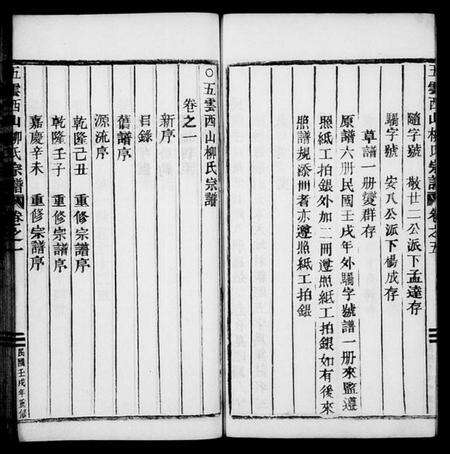 五雲西山柳氏宗譜 卷之五
隨字號 敬廿二公派下孟達存
驌字號 安八公派下楊成存
草譜一册變群存
原譜六册民國壬戌年外驌字號譜一册來監遵
照紙工拍銀外加二冊遵照紙工拍銀如有後來
照譜規添冊者亦遵照紙工拍銀
○五雲西山柳氏宗譜
卷之一
新序
目錄
舊譜序
源流序
乾隆己丑 重修宗譜序
乾隆壬子 重修宗譜序
嘉慶辛未 重修宗譜序
五雲西山柳氏宗譜 卷之一
民國壬戌年重修